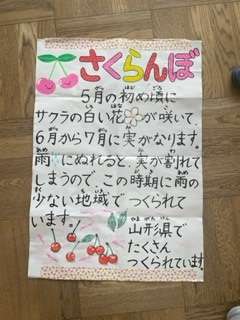 さくらんぼ
5月の初め頃に
サクラの白い花が咲いて
6月から7月に実がなります。
雨にぬれると、実が割れて
しまうので、この時期に雨の
少ない地域でつくられて
います。
山形県で
たくさん
つくられています。